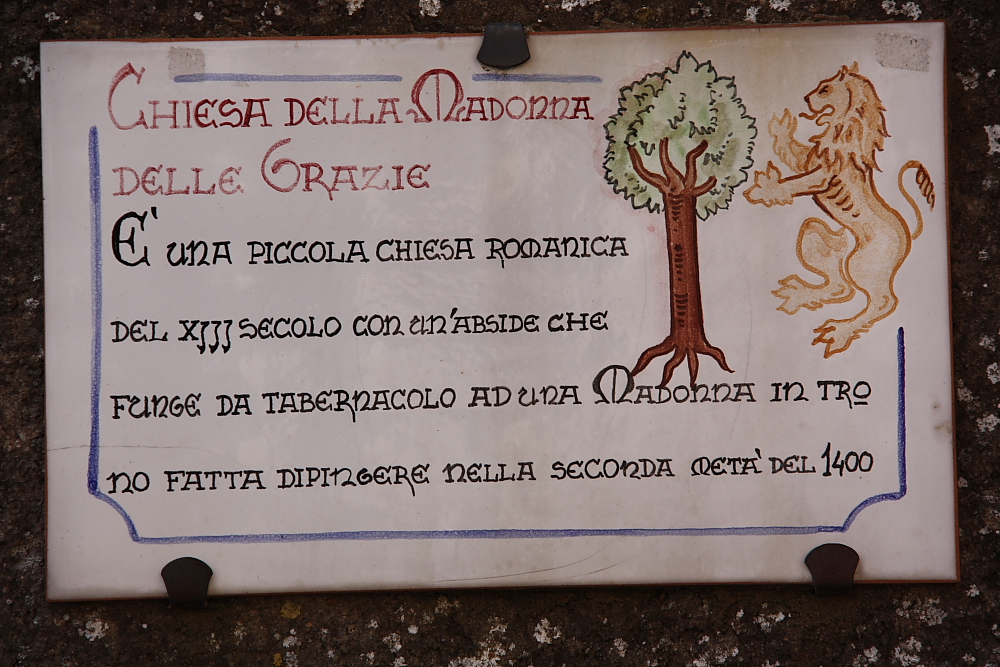 CHIESA DELLA MADONNA
DELLE GRAZIE
E' UNA PICCOLA CHIESA ROMANICA
DEL XJJJ SECOLO CON UN'ABSIDE CHE
FUNGE DA TABERNACOLO AD UNA MADONNA IN TRO
NO FATTA DIPINGERE NELLA SECONDA META' DEL 1400